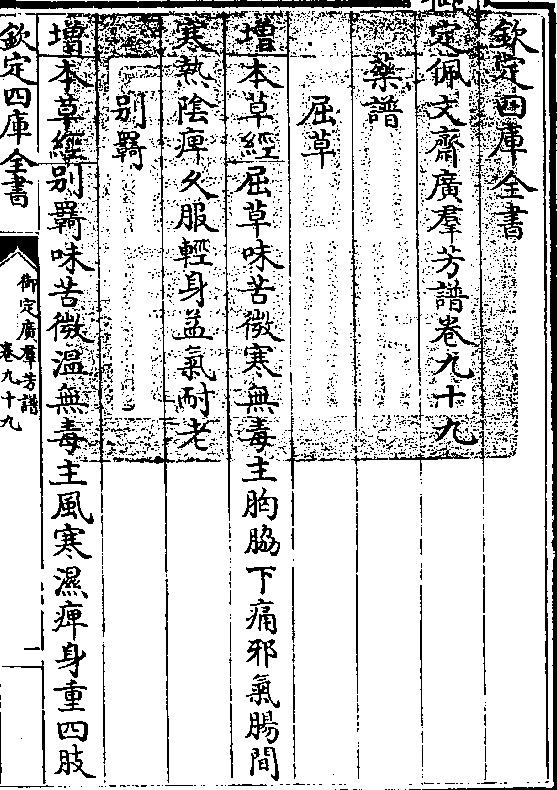 欽定四庫全書
定佩文齋廣羣芳譜卷九十九
藥譜
屈草
增本草經屈草味苦微寒無毒主胸脇下痛邪氣腸間
寒熱陰痺久服輕身益氣耐老
别羇
增本草經别羇味苦微溫無毒主風寒濕痺身重四肢
欽定四庫全書
御定廣羣芳譜
卷九十九
一